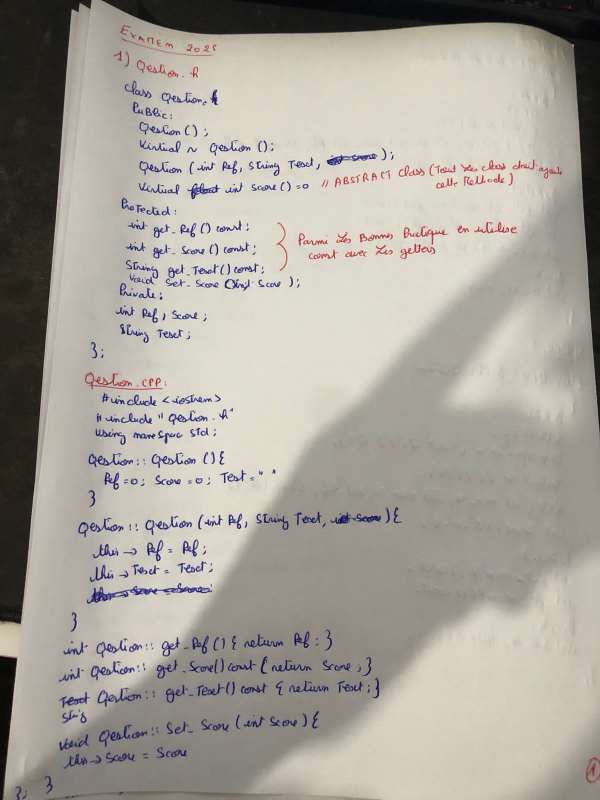 EXAMEN 2025
1) Qestion.h
class Qestion {
Public:
Qestion();
Virtual ~ Qestion();
Qestion (int Ref, String Text, int score);
Virtual float int Score()=0 // ABSTRACT class (Tout les class droit ajouté
cette Methode)
Protected:
int get_Ref() const;
int get_Score() const;
String get_Text() const;
Parmi Les Bonnes Pratique en utilise
const avec Les getters
Void Set_Score (int Score);
Private:
int Ref, Score;
String Text;
};
Qestion.CPP:
#include <iostrem>
#include "Qestion.h"
using nameSpac Std;
Qestion:: Qestion () {
Ref=0; Score=0; Text=" "
}
Qestion:: Qestion (int Ref, String Text, int Score) {
this -> Ref = Ref;
this -> Text = Text;
this -> Score = Score;
}
int Qestion:: get_Ref() { return Ref: }
int Qestion:: get_Score() const { return Score; }
Text Qestion:: get_Text() const { return Text; }
Strig
Void Qestion:: Set_Score (int Score) {
this -> Score = Score
}; }
1